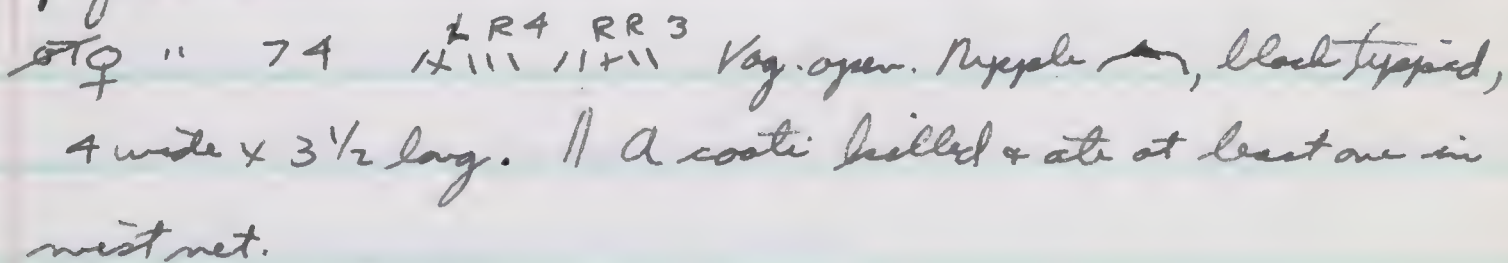 ♀ " 74 L R 4 R R 3 Vag. open. Nipple , black tipped,
4 wide x 3 1/2 long. // A coati killed & ate at least one in
mist net.